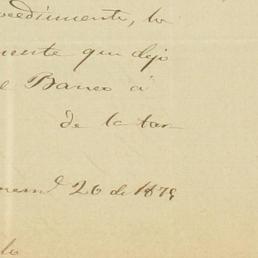 cedimiento, lo
mente que dejo
Banco á
de la tar
26 de 1879